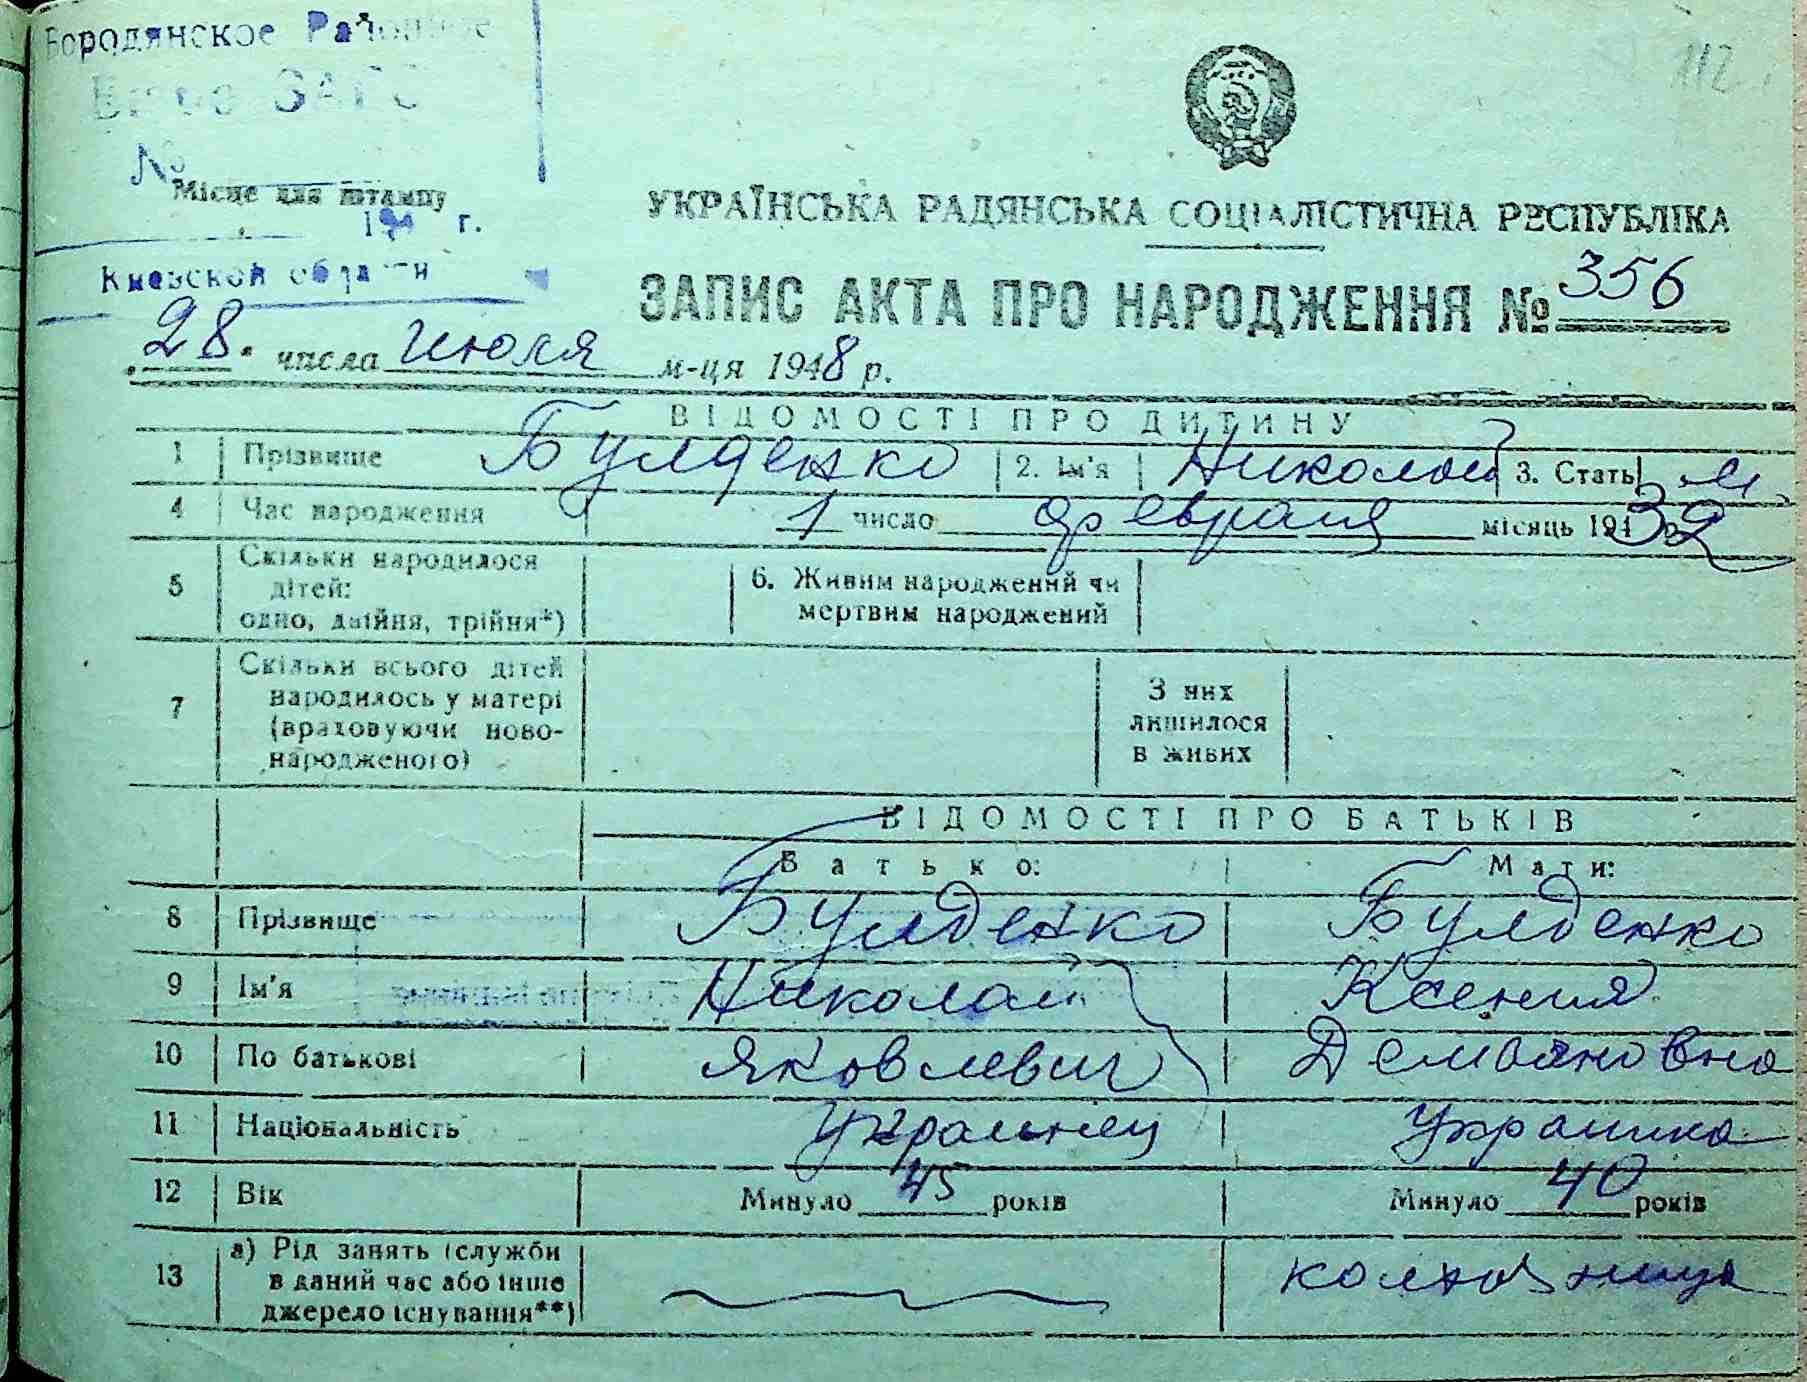 Бородянское Районное
Бюро ЗАГС
112
№
Місце для штампу
194 г.
УКРАЇНСЬКА РАДЯНСЬКА СОЦІАЛІСТИЧНА РЕСПУБЛІКА
Киевской области
ЗАПИС АКТА ПРО НАРОДЖЕННЯ № 356
28 числа июля м-ця 1948 р.
ВІДОМОСТІ ПРО ДИТИНУ
1 Прізвище Булденко 2. Ім'я Николай 3. Стать м
4 Час народження 1 число февраля місяць 1932
5 Скільки народилося дітей: одно, двійня, трійня*) 6. Живим народжений чи мертвим народжений
7 Скільки всього дітей народилось у матері (враховуючи новонародженого) З них лишилося в живих
ВІДОМОСТІ ПРО БАТЬКІВ
Батько: Мати:
8 Прізвище Булденко Булденко
9 Ім'я Николай Ксения
10 По батькові Яковлевич Демьяновна
11 Національність украинец украинка
12 Вік Минуло 45 років Минуло 40 років
13 а) Рід занять (служби в даний час або інше джерело існування**) колхозница